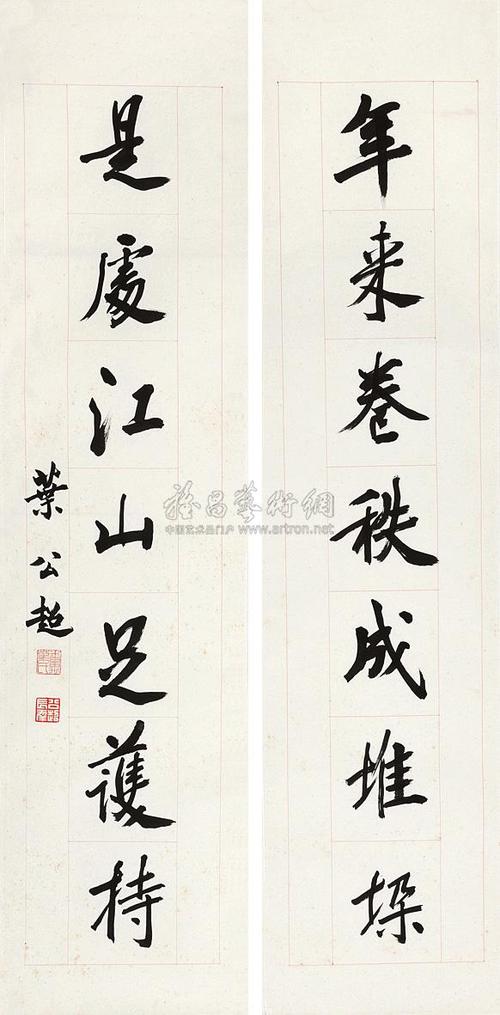 年来卷秩成堆垛
是處江山足護持
葉公超
雅昌藝術網
中国艺术品门户 www.artron.net